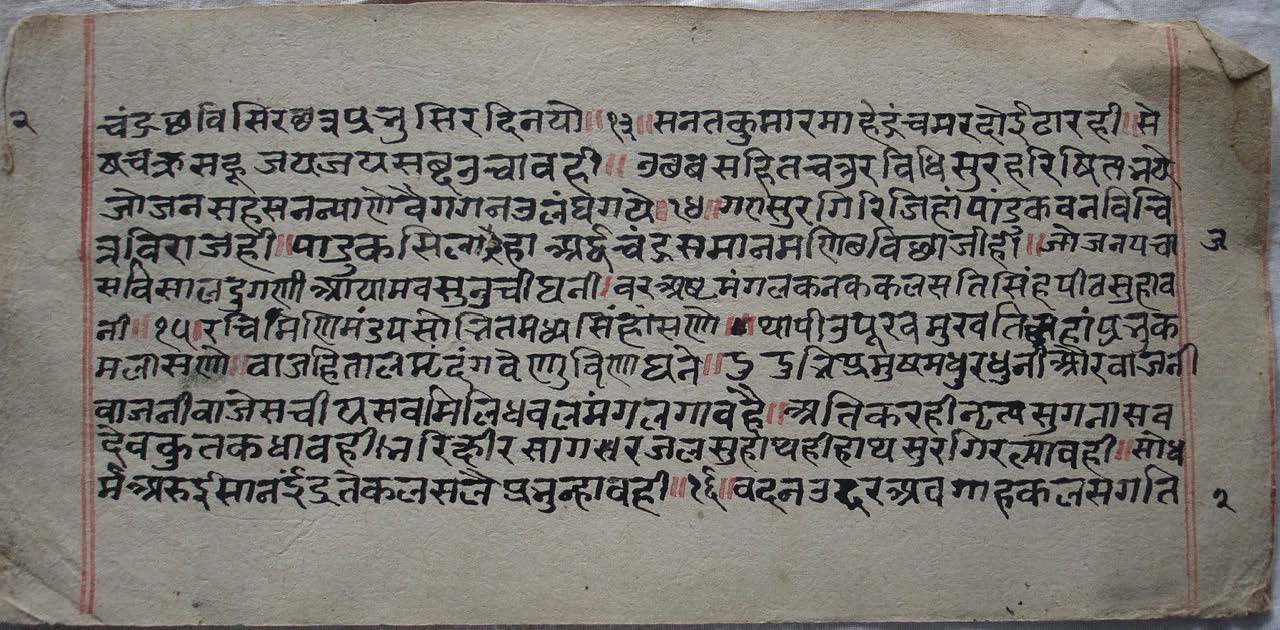 २
चंद्रछविसिरछत्रप्रभुसिरदिनयो॥१३॥सनतकुमारमाहेंद्रचमरदोईढारही॥से
षचक्रसहूजयजयसब्दनुचावही॥उछबसहितचतुरविधिसुरहरिषितभये
जोजनसहसनन्याणेवैगगनउलंघगये॥१४॥गएसुरगिरिजिहांपांडुकवनविचि
त्रविराजही॥पांडुकसिलाजहाअर्द्धचंद्रसमानमणिछविछाजीही॥जोजनपचा
सविसालदुगणीआयामवसुनुचीघनी।वरअष्टमंगलकनककलसतिसिंहपीवसुहाव
नी॥१५॥रचिमणिमंडपसोभितमध्यसिंहासणे॥थापीउपूरबमुखवतिहांप्रभुक
मलासणे॥वाजहितालमृदंगवेणुविणाघने॥दुदुभिप्रमुषमधुरधुनीऔरवाजनी
वाजनीवाजेसचीयसवमिलिधवलमंगलगावहै॥अतिकरहीनृत्यसुगनासव
देवकुतकधावही।भरिक्षीरसागरजलसुहाथहीहाथसुरगिरल्यावही॥सोध
र्मअरुईसानइंद्रतेकलसलैप्रभुन्हावही॥१६॥वदनउदरअवगाहकलसगति
३
२